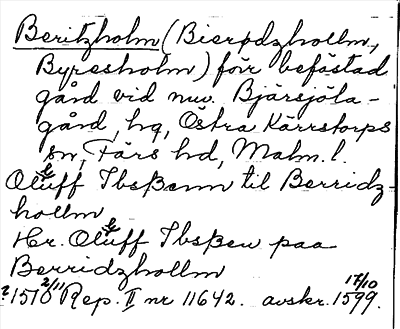 Beritzholm (Bierødzhollm,
Byresholm) förr befästad
gård vid nuv. Bjärsjöla-
gård, hg, Östra Kärrstorps
sn, Färs hd, Malm. l.
Oluff Ibsßenn til Berridz-
hollm
Hr. Oluff Ibsßen paa
Berridzhollm
? 1510 2/11 Rep. II nr 11642. avskr. 17/10 1599.